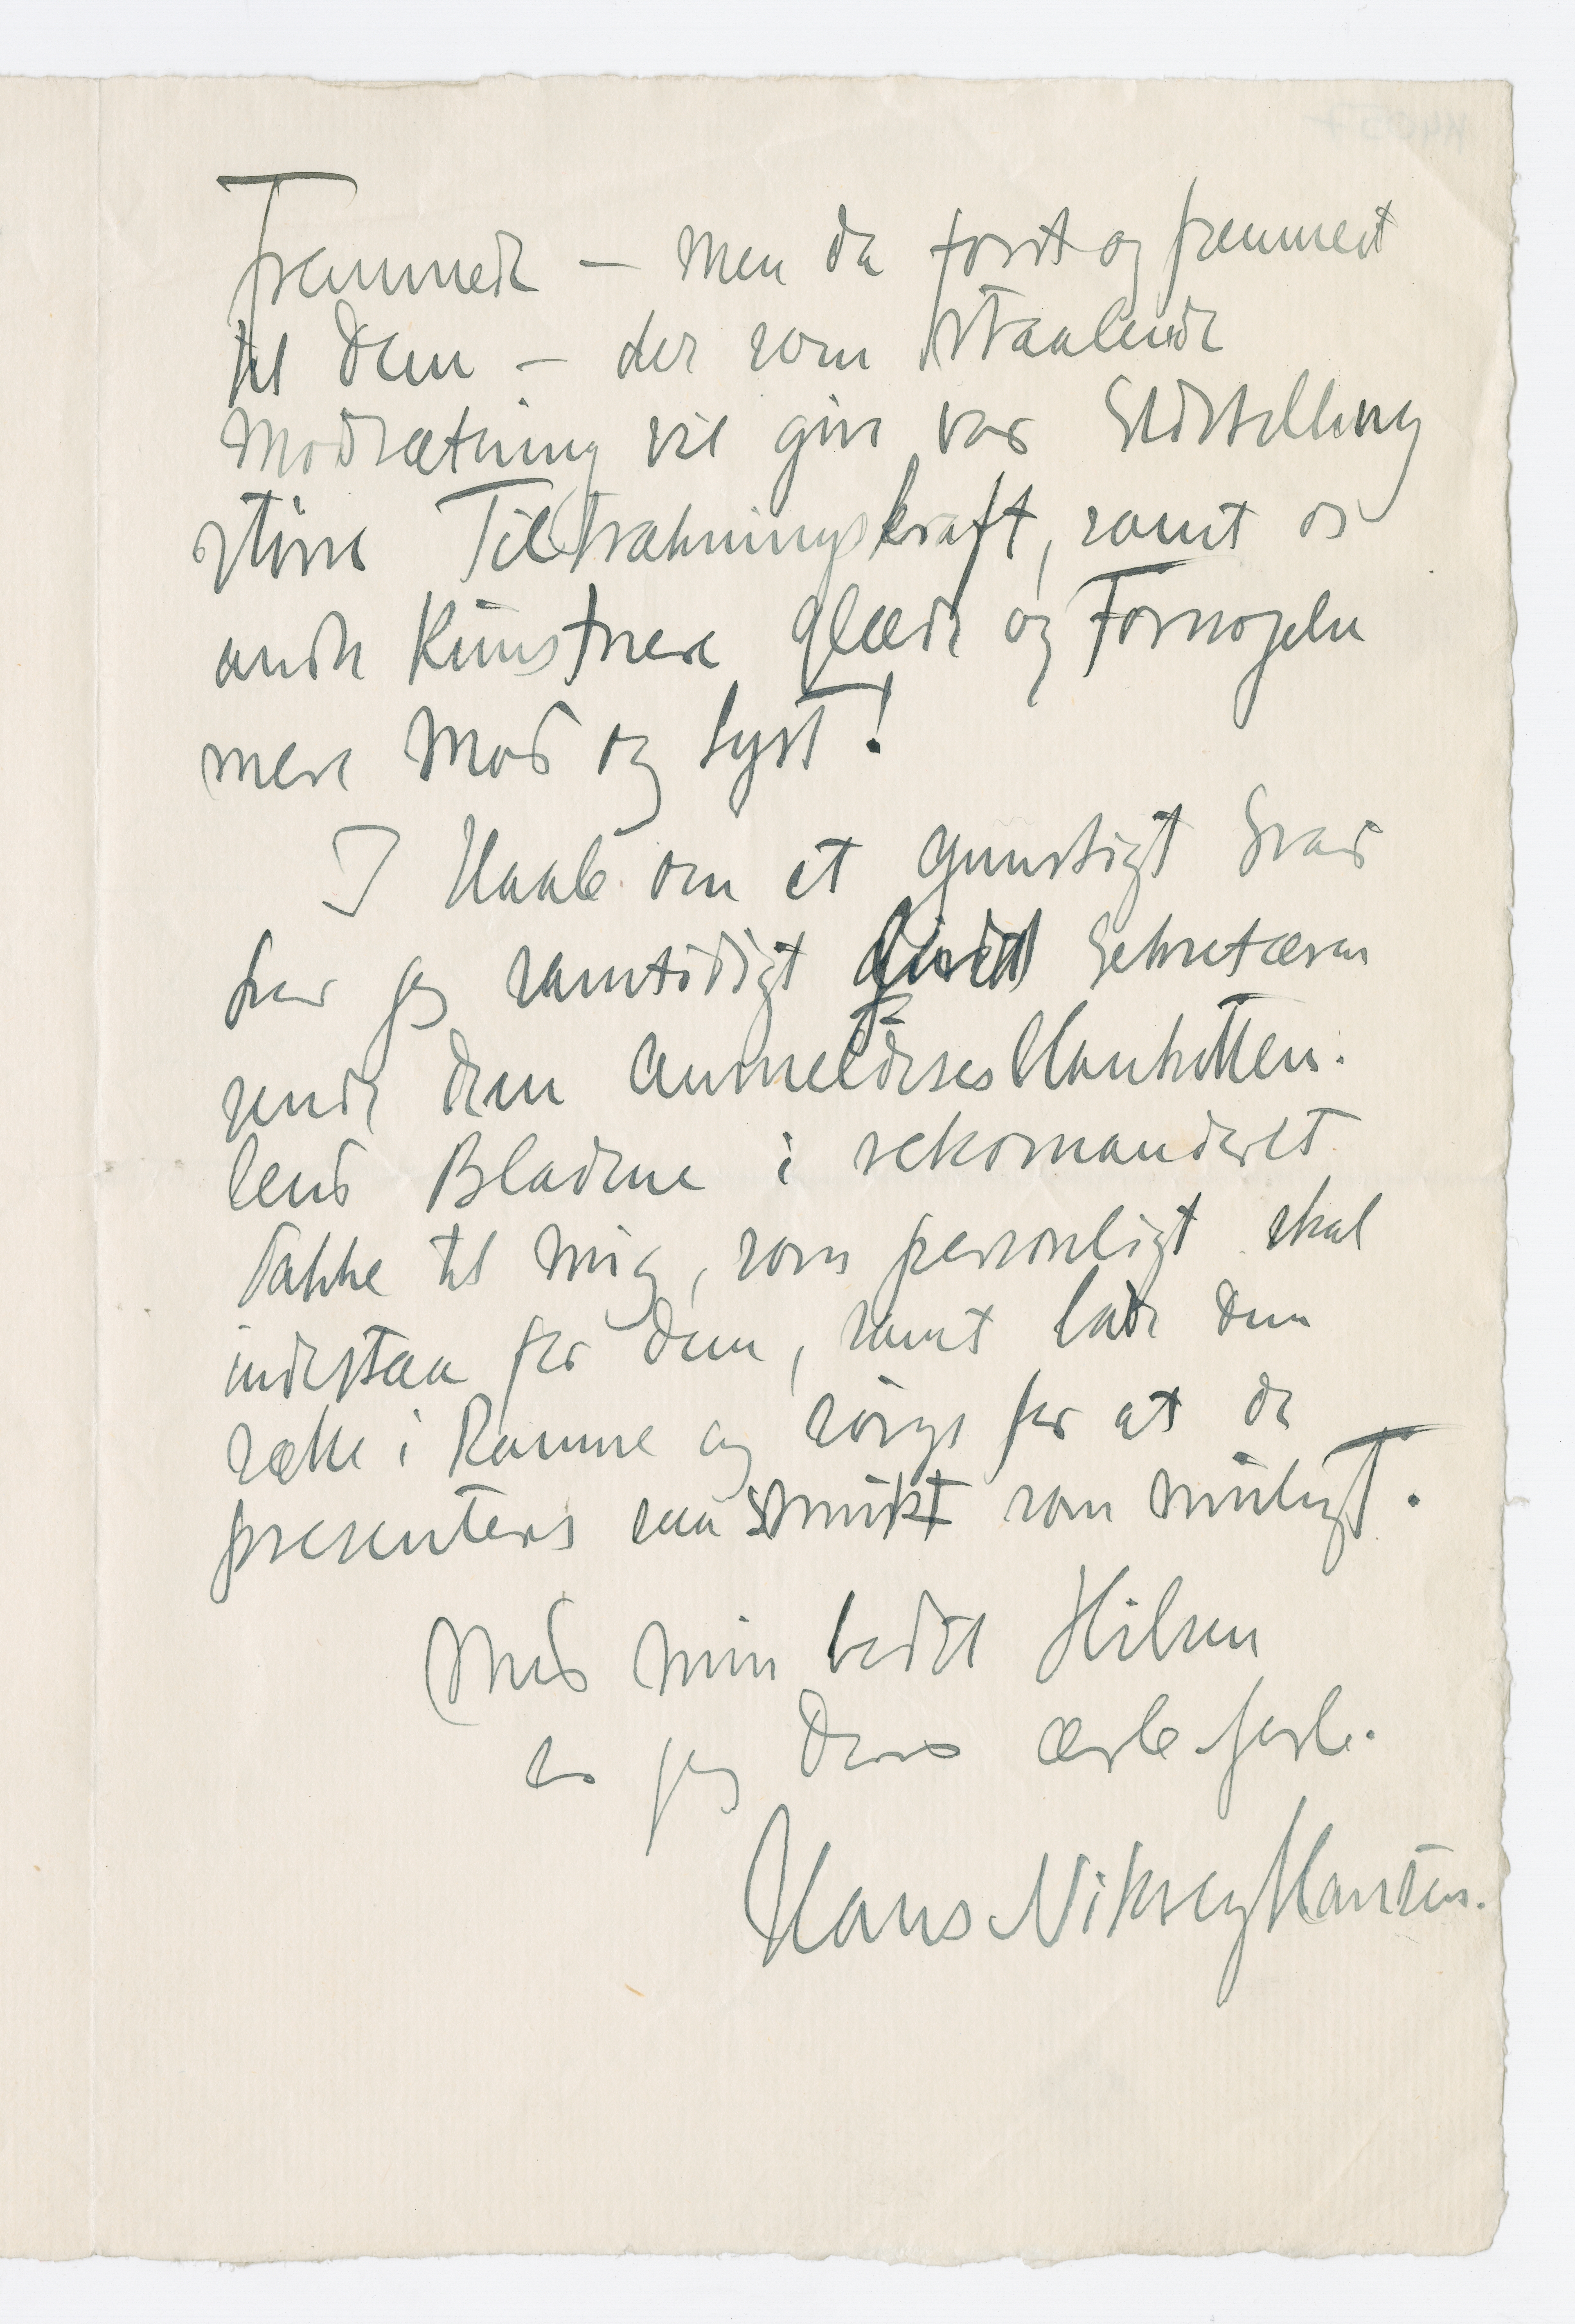 fremmede – Men da først og fremmest
til Dem – der som straalende
Modsætning vil give vor Udstilling
større Tiltrækningskraft, samt os
andre Kunstnere Glæde og Fornøjelse
mere Mod og Lyst!
I Haab om et gunstigt Svar
har jeg samtidigt Sekretæren
sende Dem Anmeldelsesblanketten.
Send Bladene i rekomanderet
Pakke til mig, som personligt skal
indestaa for dem, samt lade dem
sætte i Ramme og sørge for at de
presenteres saa smukt som muligt.
Med min bedste Hilsen
er jeg Deres ærb. forb.
Hans Nikolaj Hansen.